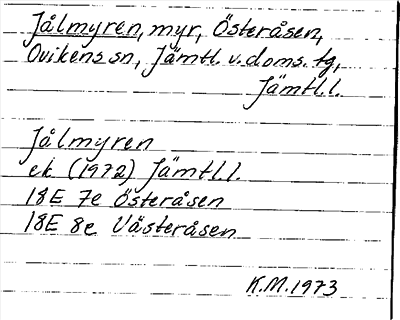 Jålmyren, myr, Österåsen,
Ovikens sn, Jämtl. v. doms. tg,
Jämtl.l.
Jålmyren
ek (1972) Jämtl.l.
18E 7e Österåsen
18E 8e Västeråsen
K.M. 1973